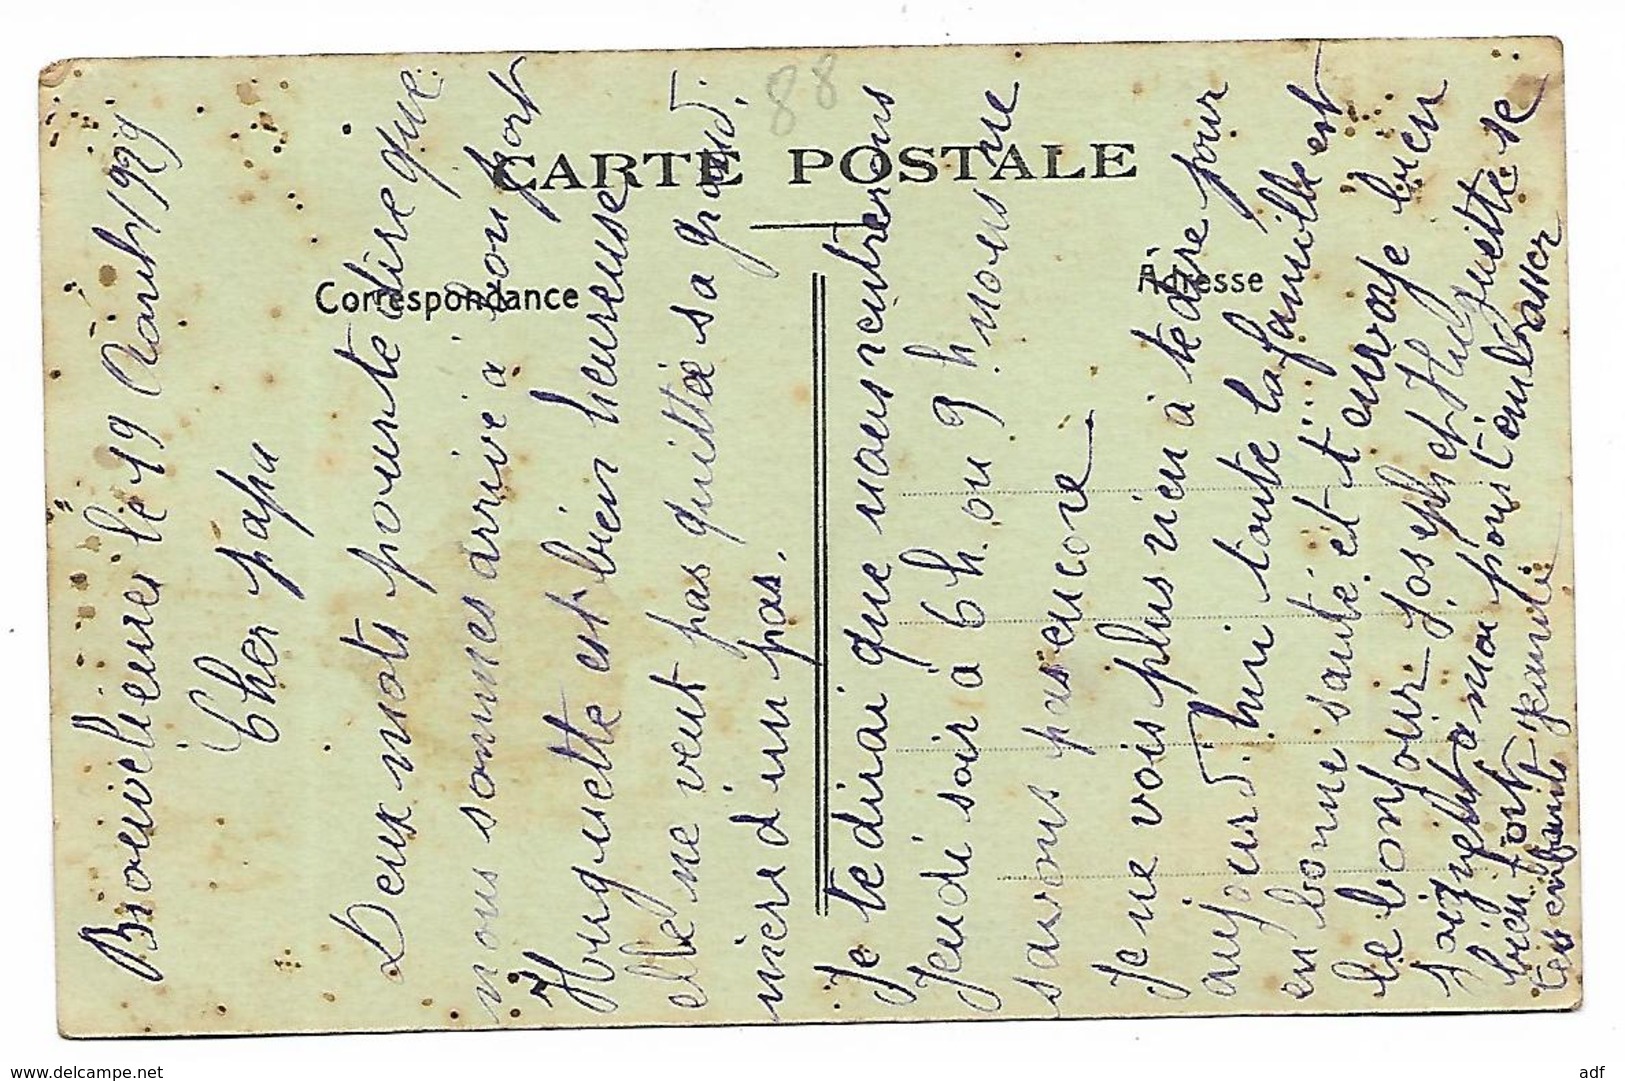 88
CARTE POSTALE
Correspondance
Adresse
le 19 Août 1929
Cher papa
Deux mots pour te dire que
nous sommes arrivé à bon port
Huguette est bien heureuse
elle ne veut pas quittée sa grand.
mère d'un pas.
Je te dirai que nous rentrerons
Jeudi soir à 6 h. ou 9 h nous ne
savons pas encore
Je ne vois plus rien à te dire pour
aujourd.hui toute la famille est
en bonne santé et t'envoye bien
le bonjoir Joseph et Huguette se
joignent a moi pour t'embrasser
bien fort
tes enfants
www.delcampe.net
adf